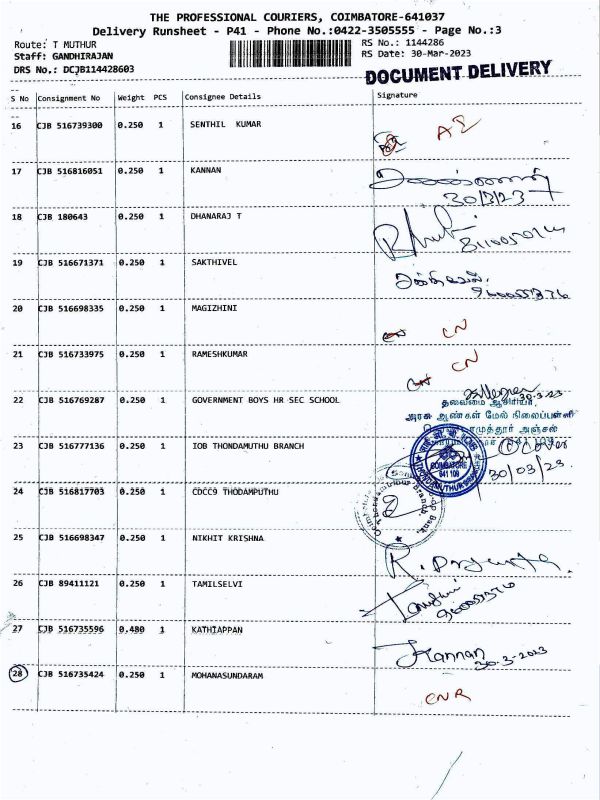 THE PROFESSIONAL COURIERS, COIMBATORE-641037
Delivery Runsheet - P41 - Phone No.:0422-3505555 - Page No.:3
Route: T MUTHUR
RS No.: 1144286
Staff: GANDHIRAJAN
RS Date: 30-Mar-2023
DRS No.: DCJB114428603
DOCUMENT DELIVERY
S No Consignment No Weight PCS Consignee Details Signature
16 CJB 516739300 0.250 1 SENTHIL KUMAR
17 CJB 516816051 0.250 1 KANNAN
30/3/23
18 CJB 180643 0.250 1 DHANARAJ T
19 CJB 516671371 0.250 1 SAKTHIVEL
20 CJB 516698335 0.250 1 MAGIZHINI CN
21 CJB 516733975 0.250 1 RAMESHKUMAR CN
22 CJB 516769287 0.250 1 GOVERNMENT BOYS HR SEC SCHOOL 30-3-23
தலைமை ஆசிரியர்
அரசு ஆண்கள் மேல் நிலைப்பள்ளி
23 CJB 516777136 0.250 1 IOB THONDAMUTHU BRANCH
COIMBATORE
641 109
30/03/23
24 CJB 516817703 0.250 1 CDCC9 THODAMPUTHU
25 CJB 516698347 0.250 1 NIKHIT KRISHNA
26 CJB 89411121 0.250 1 TAMILSELVI
27 CJB 516735596 0.480 1 KATHIAPPAN Kannan
30-3-2023
28 CJB 516735424 0.250 1 MOHANASUNDARAM CNR